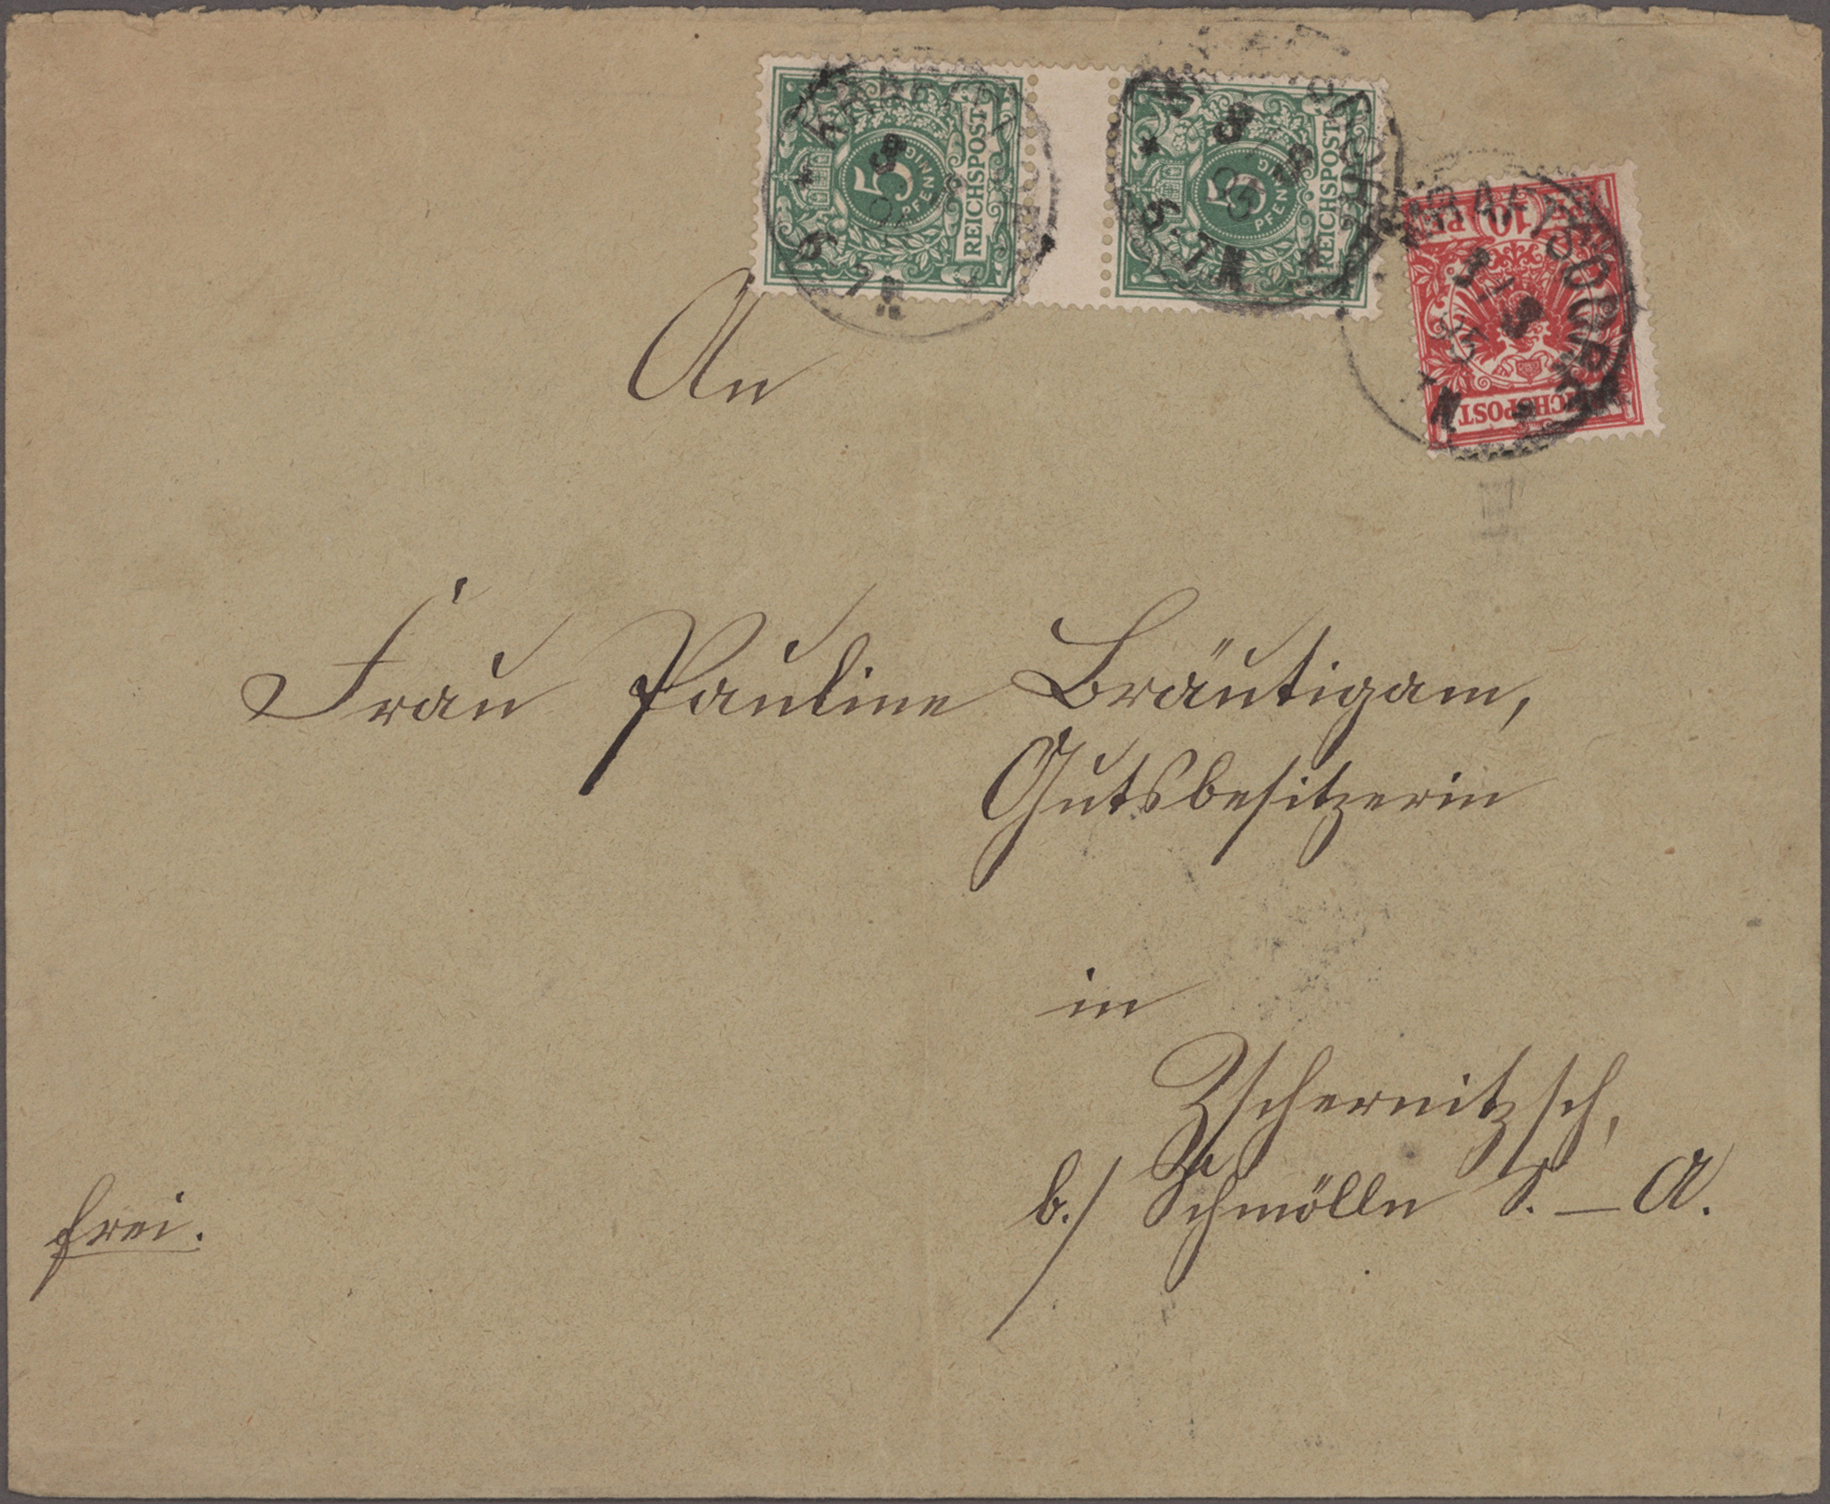 5
PFENNIG
REICHSPOST
5
PFENNIG
REICHSPOST
10
REICHSPOST
KRAFTSDORF
An
Frau Pauline Bräutigam,
Gutsbesitzerin
in
Zschernitzsch,
b./ Schmölln S. – A.
frei.